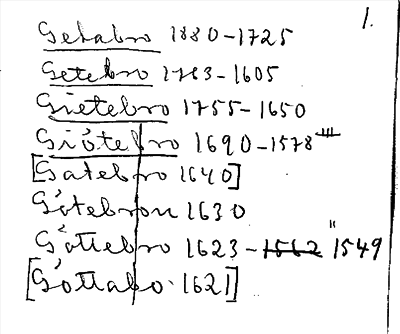 1.
Getabro 1880-1725
Getebro 1783-1605
Gietebro 1755-1650
Giötebro 1690-1578
[Gatebro 1640]
Götebron 1630
Göttebro 1623-1562 1549
[Göttabo 1621]